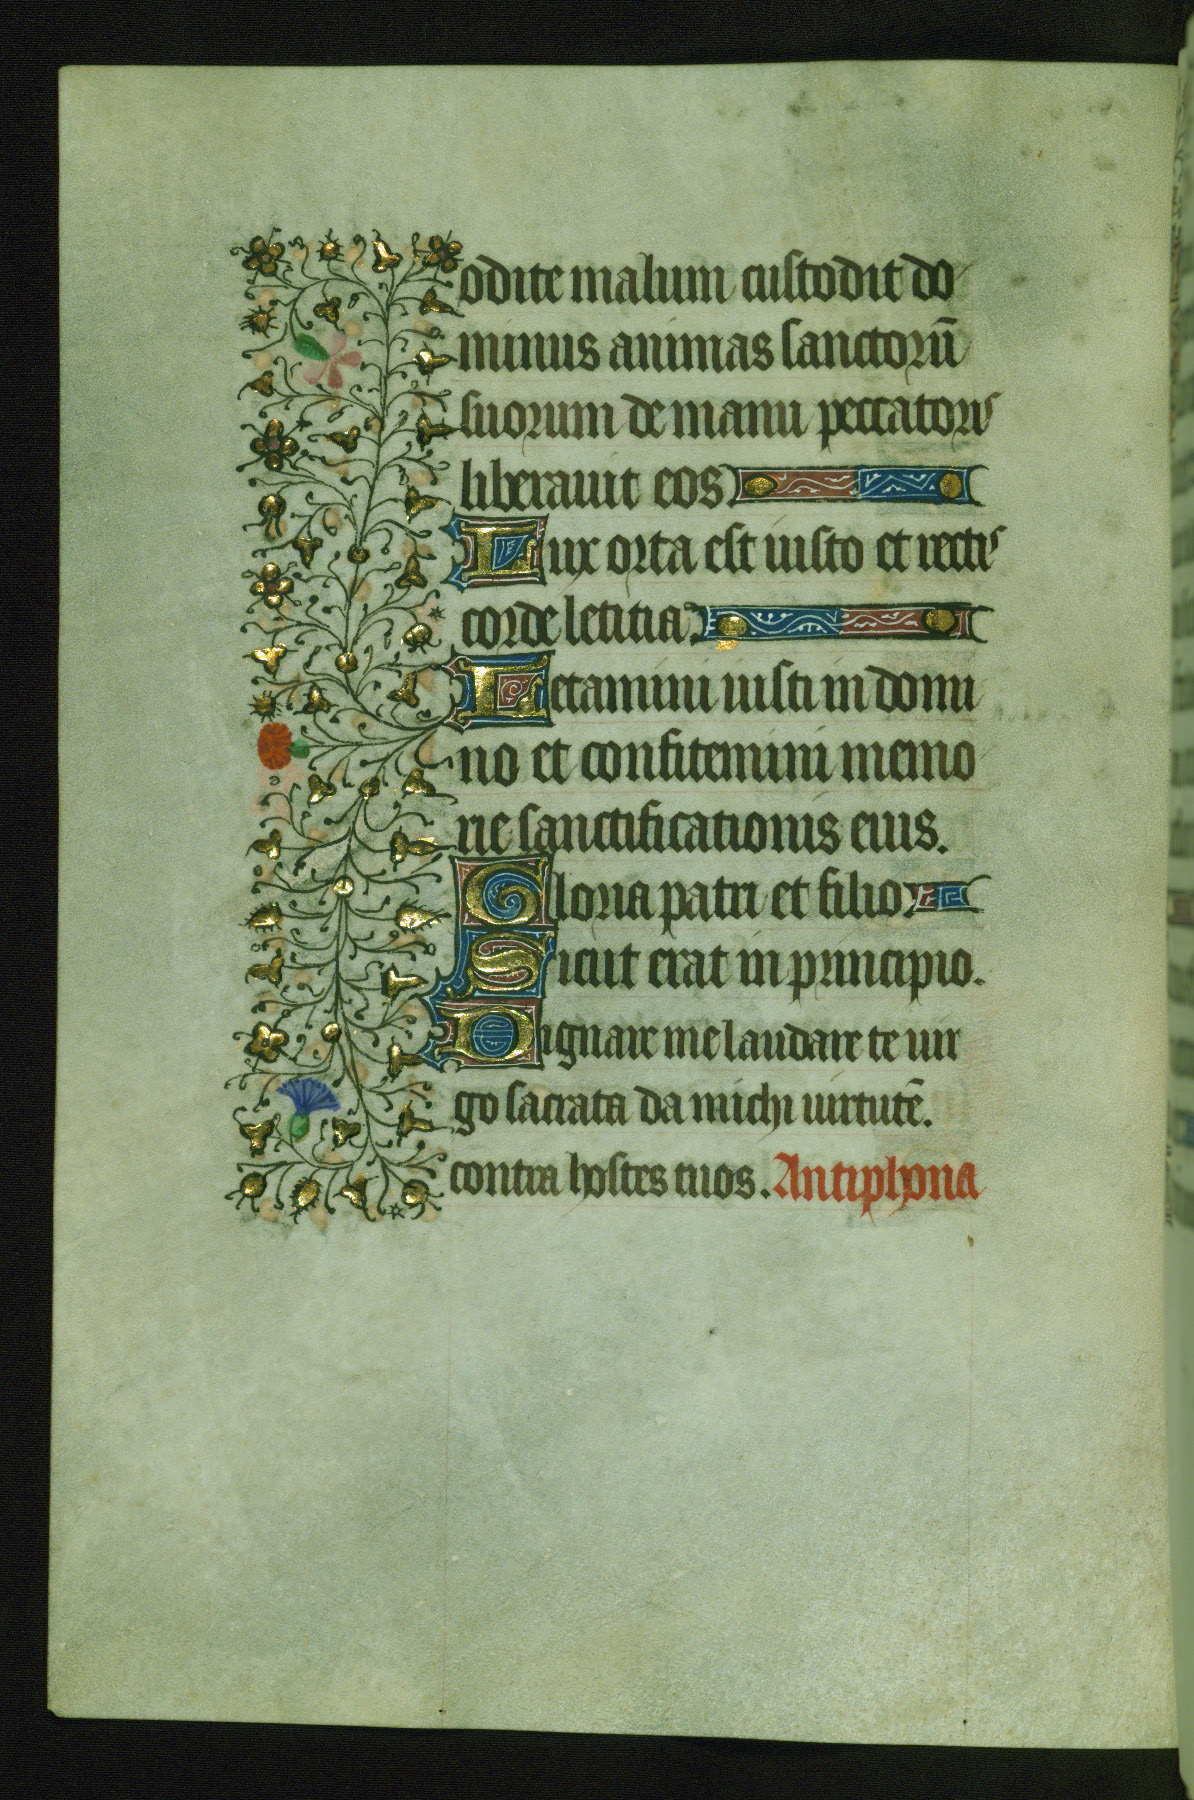 odite malum custodit do
minus animas sanctorū
suorum de manu peccatoris
liberauit eos
Lux orta est iusto et rectis
corde letitia
Letamini iusti in domi
no et confitemini memo
rie sanctificationis eius.
Gloria patri et filio
Sicut erat in principio.
Dignare me laudare te uir
go sacrata da michi uirtutē.
contra hostes tuos. Antiphona